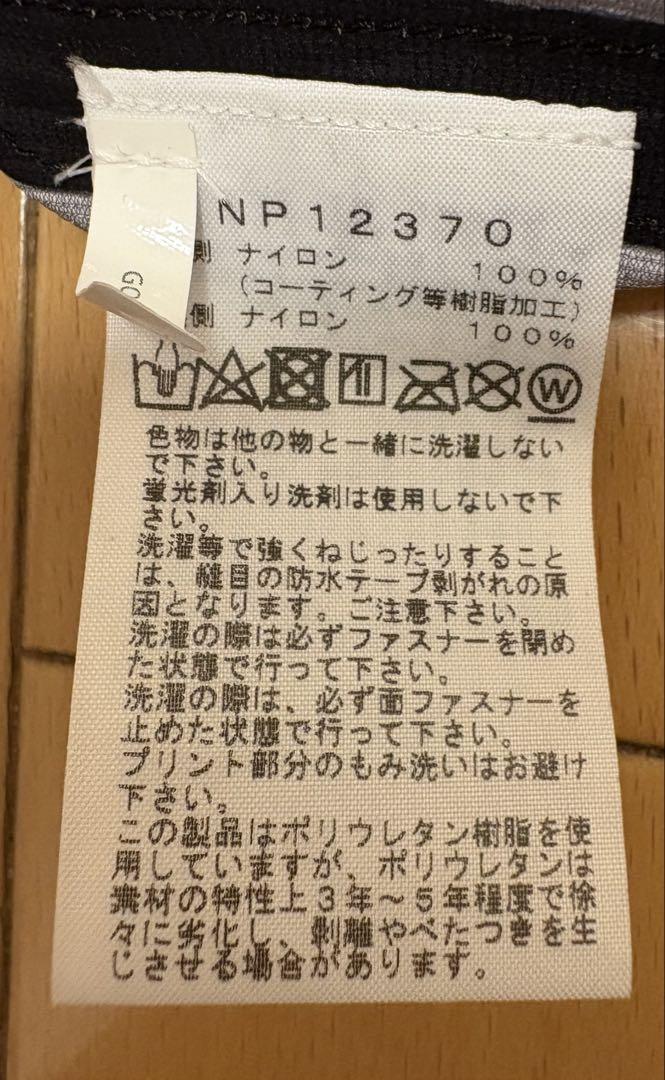 NP12370
側 ナイロン 100%
(コーティング等樹脂加工)
側 ナイロン 100%
W
色物は他の物と一緒に洗濯しない
で下さい。
蛍光剤入り洗剤は使用しないで下
さい。
洗濯等で強くねじったりすること
は、縫目の防水テープ剥がれの原
因となります。ご注意下さい。
洗濯の際は必ずファスナーを閉め
た状態で行って下さい。
洗濯の際は、必ず面ファスナーを
止めた状態で行って下さい。
プリント部分のもみ洗いはお避け
下さい。
この製品はポリウレタン樹脂を使
用していますが、ポリウレタンは
素材の特性上3年～5年程度で徐
々に劣化し、剥離やべたつきを生
じさせる場合があります。
GO